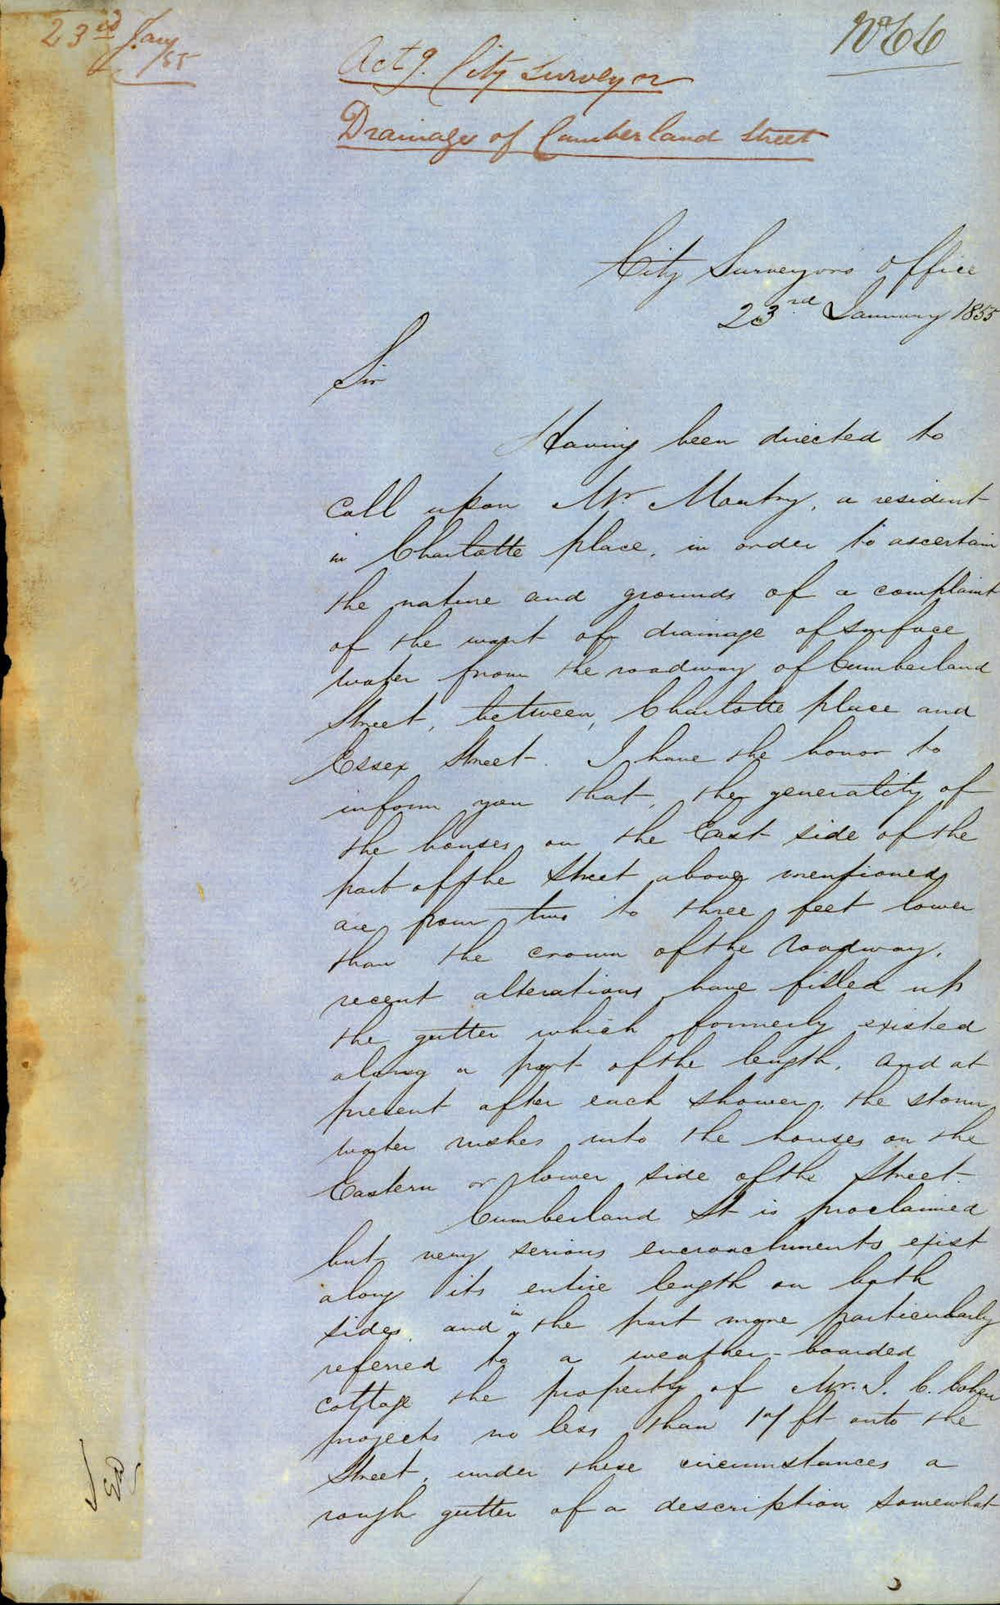 23rd Jany
/55
No 66
Actg. City Surveyor
Drainage of Cumberland Street
City Surveyors Office
23rd January 1855
Sir
Having been directed to
call upon Mr. , a resident
in Charlotte place, in order to ascertain
the nature and grounds of a complaint
of the want of drainage of surface
water from the roadway of Cumberland
Street, between, Charlotte place and
Essex Street. I have the honor to
inform you that, the generality of
the houses on the East side of the
part of the Street above mentioned
are from two to three feet lower
than the crown of the roadway,
recent alterations have filled up
the gutter which formerly existed
along a part of the length, and at
present after each shower, the storm
water rushes into the houses on the
Eastern or lower side of the Street.
Cumberland St is proclaimed
but very serious encroachments exist
along its entire length on both
sides, and in the part more particularly
referred to a weather-boarded
cottage the property of Mr. J. C. Cohen
projects no less than 17 ft onto the
Street, under these circumstances a
rough gutter of a description somewhat